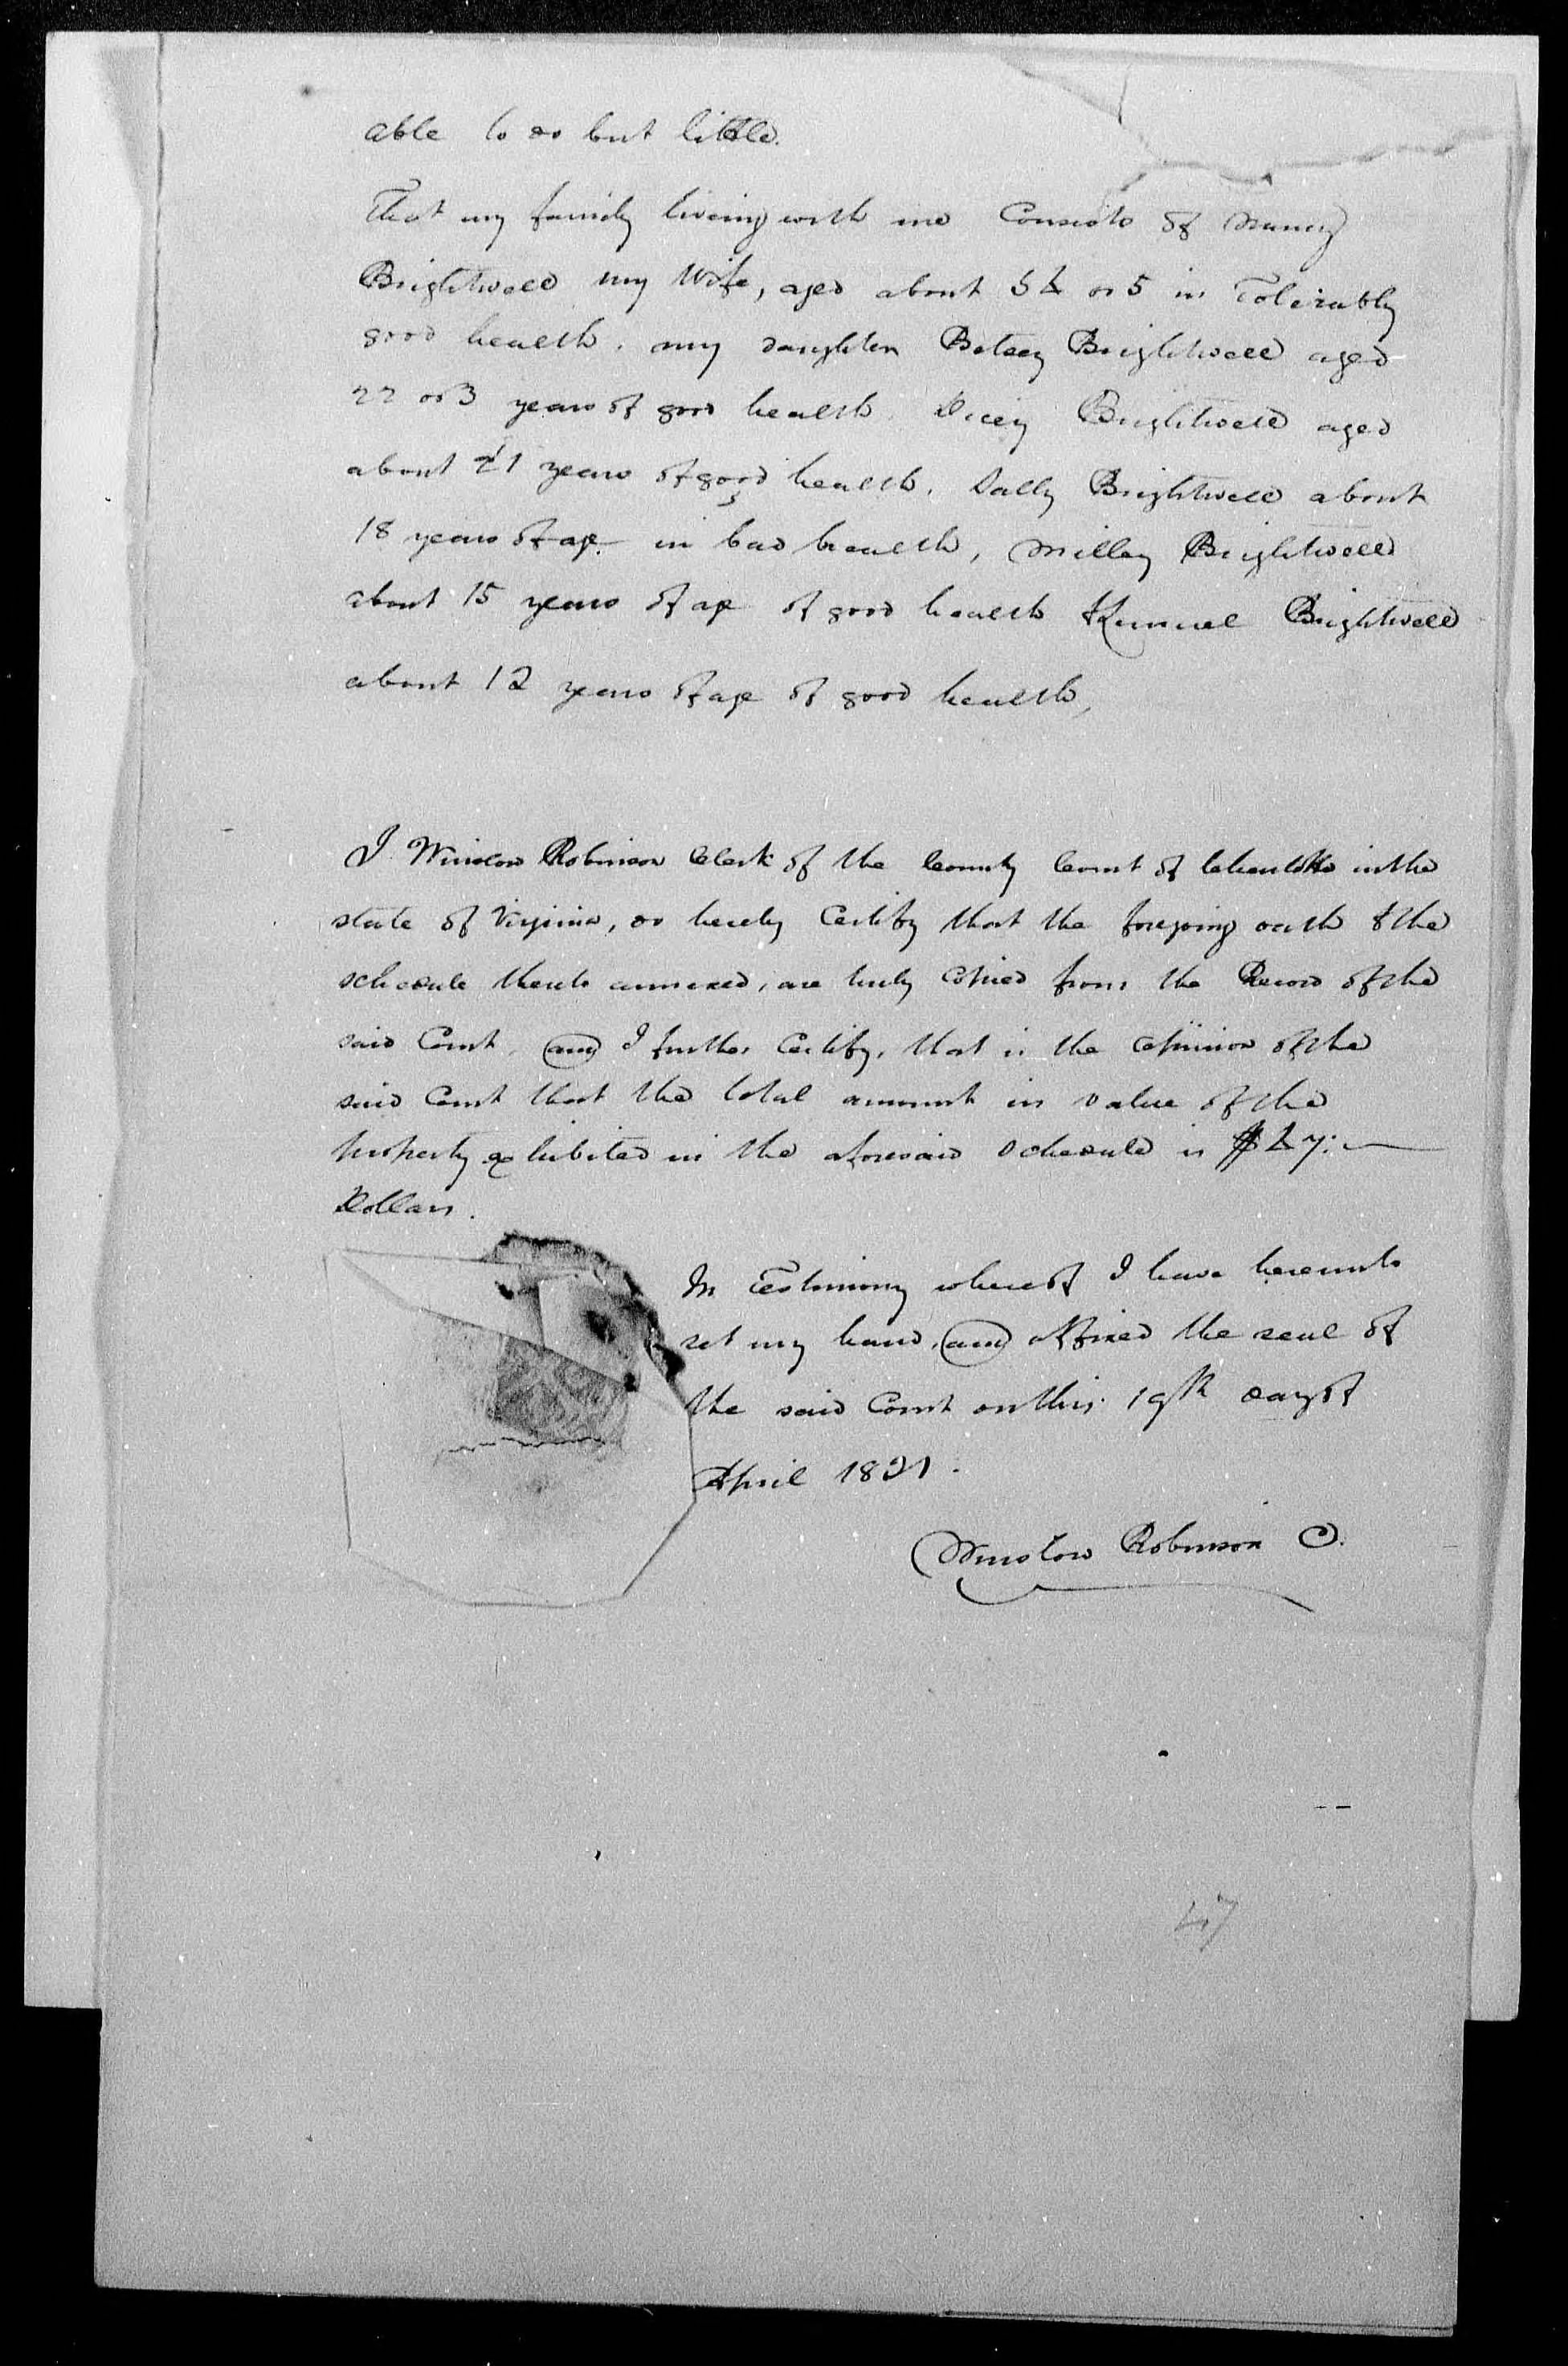 able to do but little.
That my family living with me Consists of Nancy
Brightwell my Wife, aged about 54 or 5 in Tolerably
good health. my daughter Betsey Brightwell aged
22 or 3 years of good health. Dicey Brightwell aged
about 21 years of good health. Sally Brightwell about
18 years of age in bad health, Milley Brightwell
about 15 years of age of good health Brightwell
about 12 years of age of good health,
I Winslow Robinson Clerk of the County Court of Charlotte in the
state of Virginia, do hereby Certify that the foregoing oath & the
schedule thereto annexed, are truly Copied from the Record of the
said Court, and I further Certify, that is the opinion of the
said Court that the total amount in value of the
property exhibited in the aforesaid schedule is $47:
Dollars.
In Testimony whereof I have hereunto
set my hand, and affixed the seal of
the said Court on this 19th day of
April 1821.
Winslow Robinson C.
47